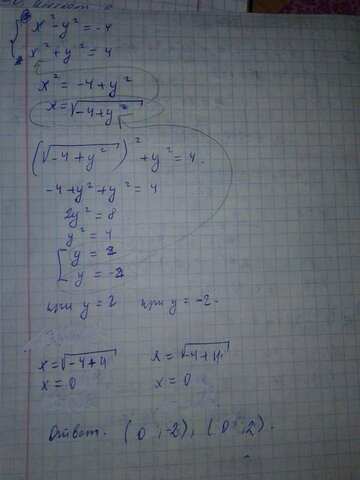 { x² - y² = -4
x² + y² = 4
x² = -4 + y²
x = √-4+y²
(√-4+y²)² + y² = 4.
-4 + y² + y² = 4
2y² = 8
y² = 4
[ y = 2
y = -2
при y = 2 при y = -2.
x = √-4+4 x = √-4+4
x = 0 x = 0
Ответ. (0 ; -2), (0 ; 2).